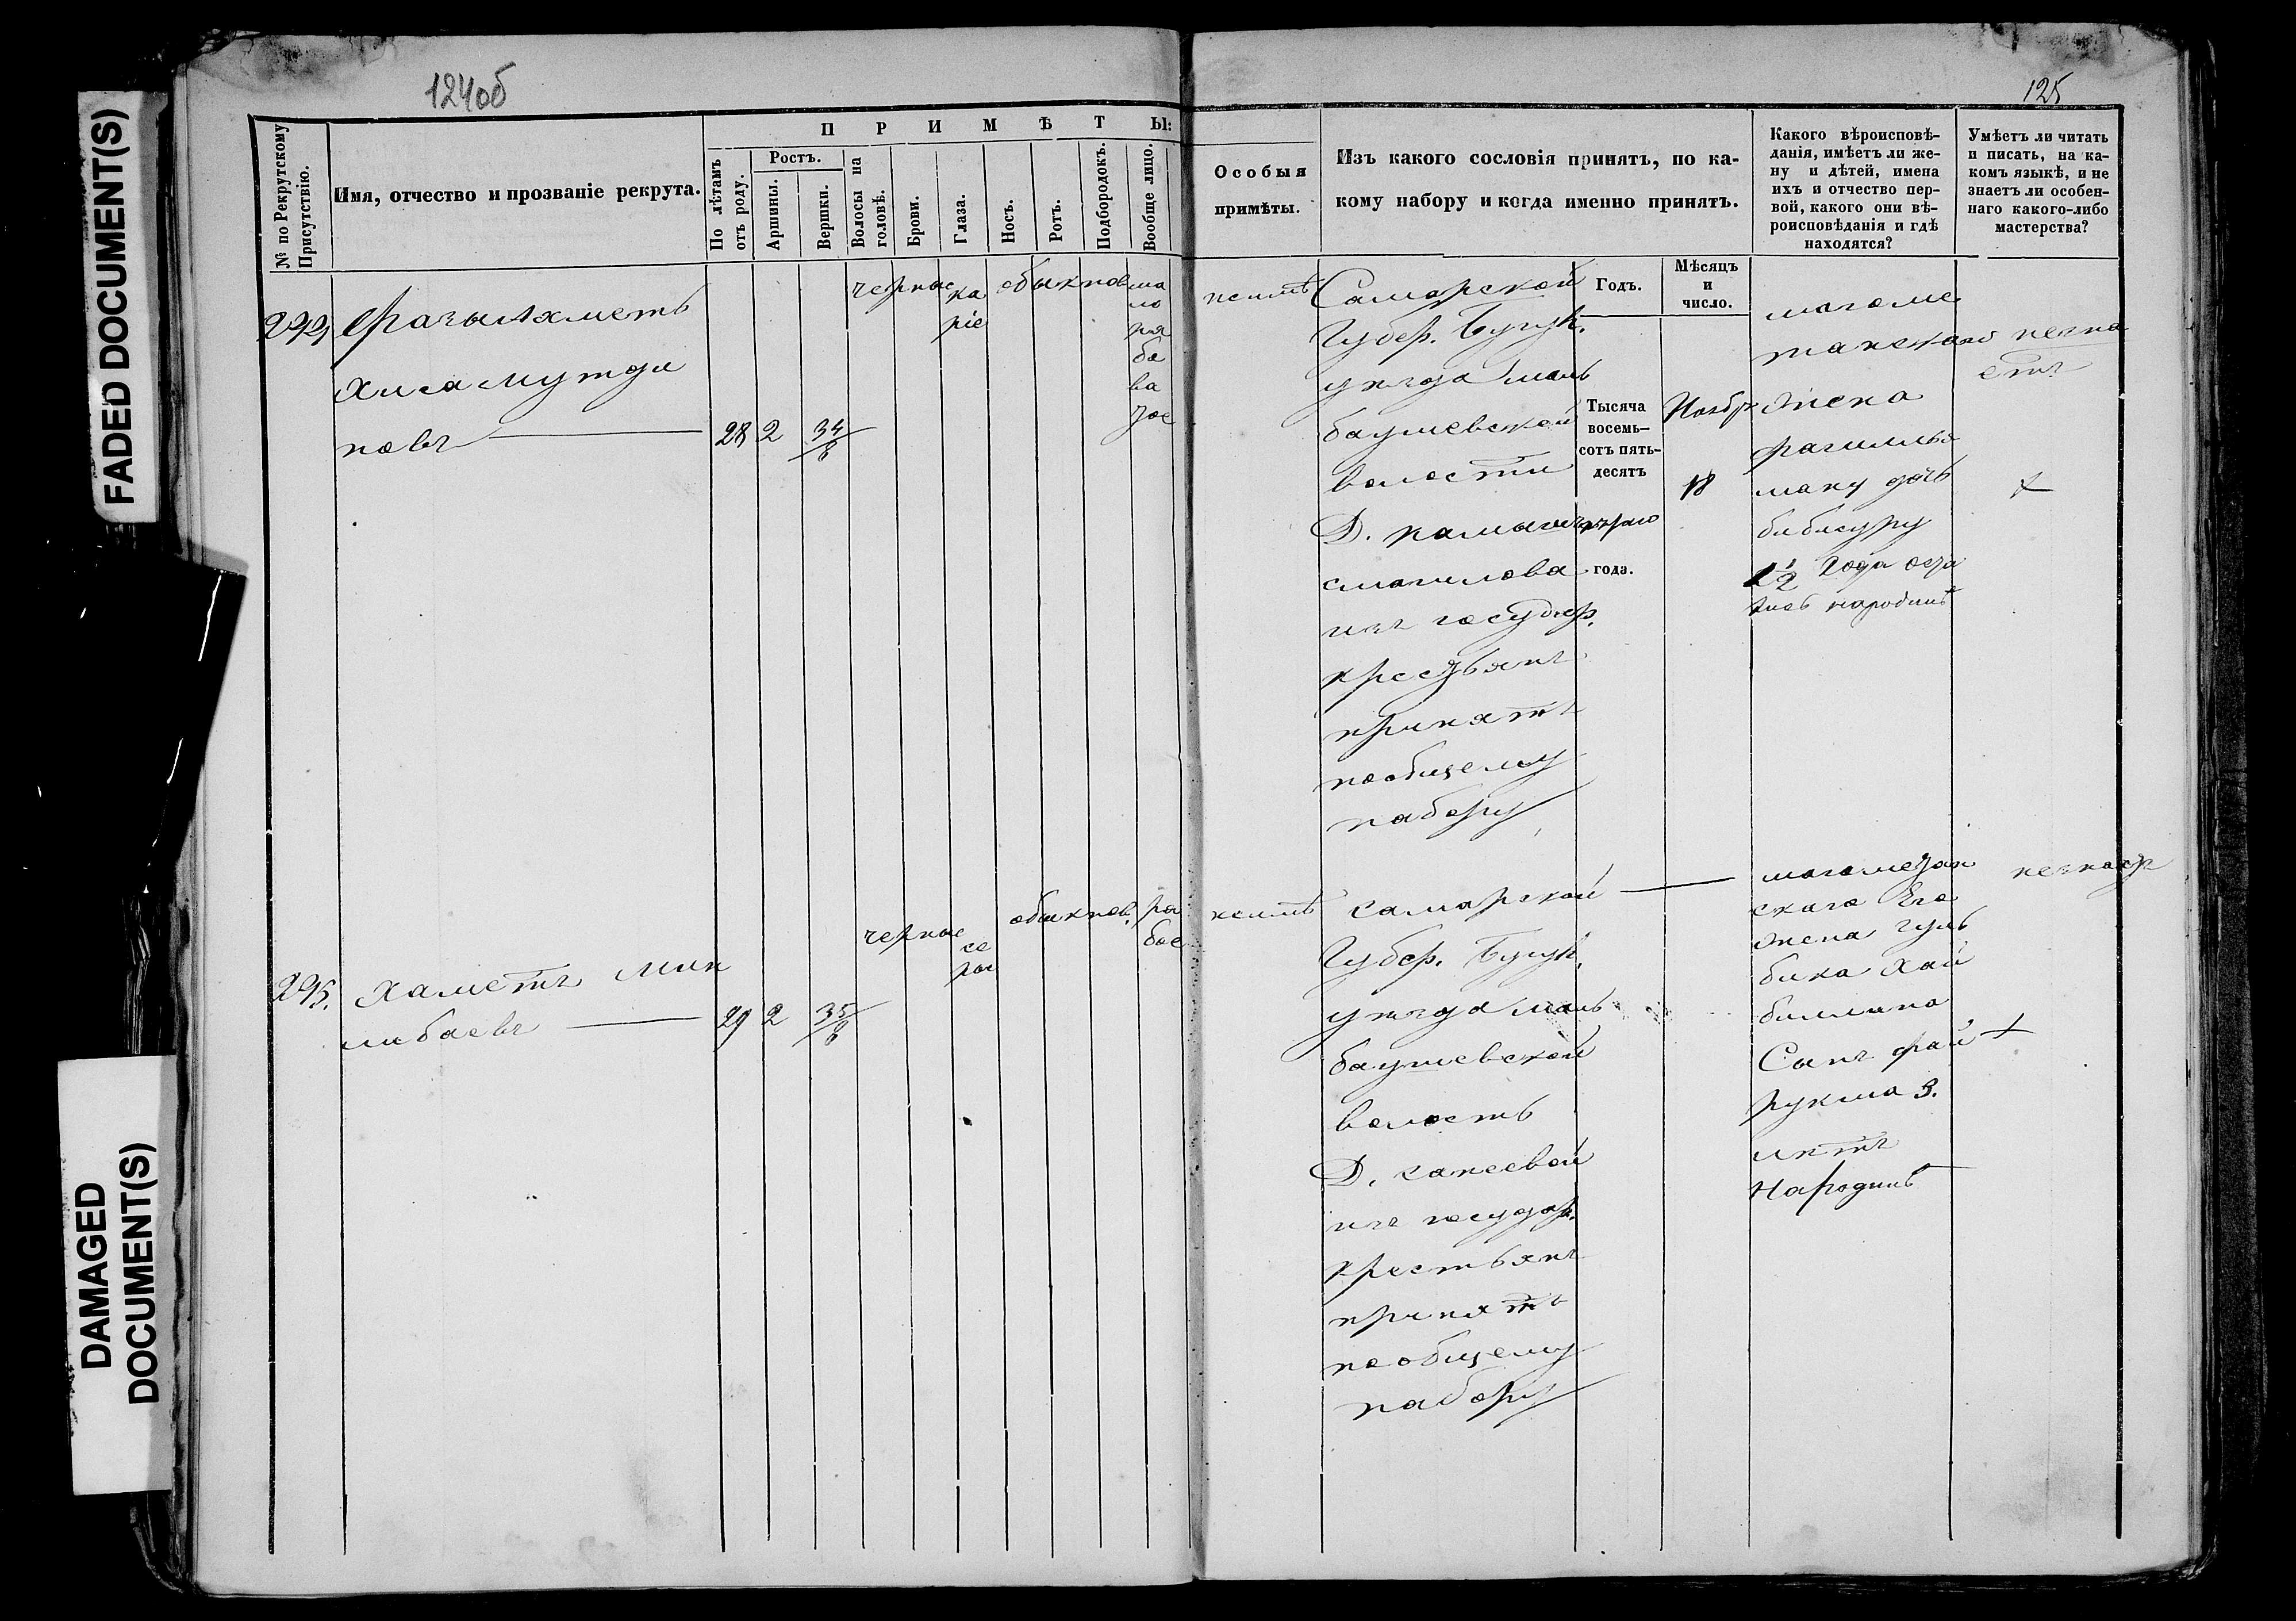 FADED DOCUMENT(S)
DAMAGED
DOCUMENT(S)
124об
125
№ по Рекрутскому
Присутствію.
Имя, отчество и прозваніе рекрута.
ПРИМѢТЫ:
По лѣтамъ
отъ роду.
Ростъ.
Аршины.
Вершки.
Волосы на
головѣ.
Брови.
Глаза.
Носъ.
Ротъ.
Подбородокъ.
Вообще лицо.
Особыя
примѣты.
Изъ какого сословія принятъ, по ка-
кому набору и когда именно принятъ.
Какого вѣроисповѣ-
данія, имѣетъ ли же-
ну и дѣтей, имена
ихъ и отчество пер-
вой, какого они вѣ-
роисповѣданія и гдѣ
находятся?
Умѣетъ ли читать
и писать, на ка-
комъ языкѣ, и не
знаетъ ли особен-
наго какого-либо
мастерства?
Годъ.
Мѣсяцъ
и
число.
Тысяча
восемь-
сотъ пять-
десятъ
года.
294
Фазылахметь
Хисамутди
новъ
28 2 34/8
черные
ка
ріе
обыкнов
ма
ло
ря
бо
ва
тое
неимѣ
Самарской
Губер. Бугул.
уѣзда маль
баушевской
волости
Д.
смаилова
изъ государ.
крестьянъ
принятъ
пообщему
набору
Ноябр
18
магоме
танскаго
Жена
дочь
бибисуру
1/2 года оста
лись народинѣ
незна
етъ
295.
Хаметъ Мин
либаевъ
29 2 35/8
черные
се
рые
обыкнов.
ря
бое
неимѣ
Самарской
Губер. Бугул.
уѣзда маль
баушевской
волость
Д. сакеевой
изъ государ.
крестьянъ
принятъ
пообщему
набору
магометан
скаго Его
жена гуль
бика Хай
буллина
Сынъ фай
рукша 3.
лѣтъ
Народинѣ
незнаетъ